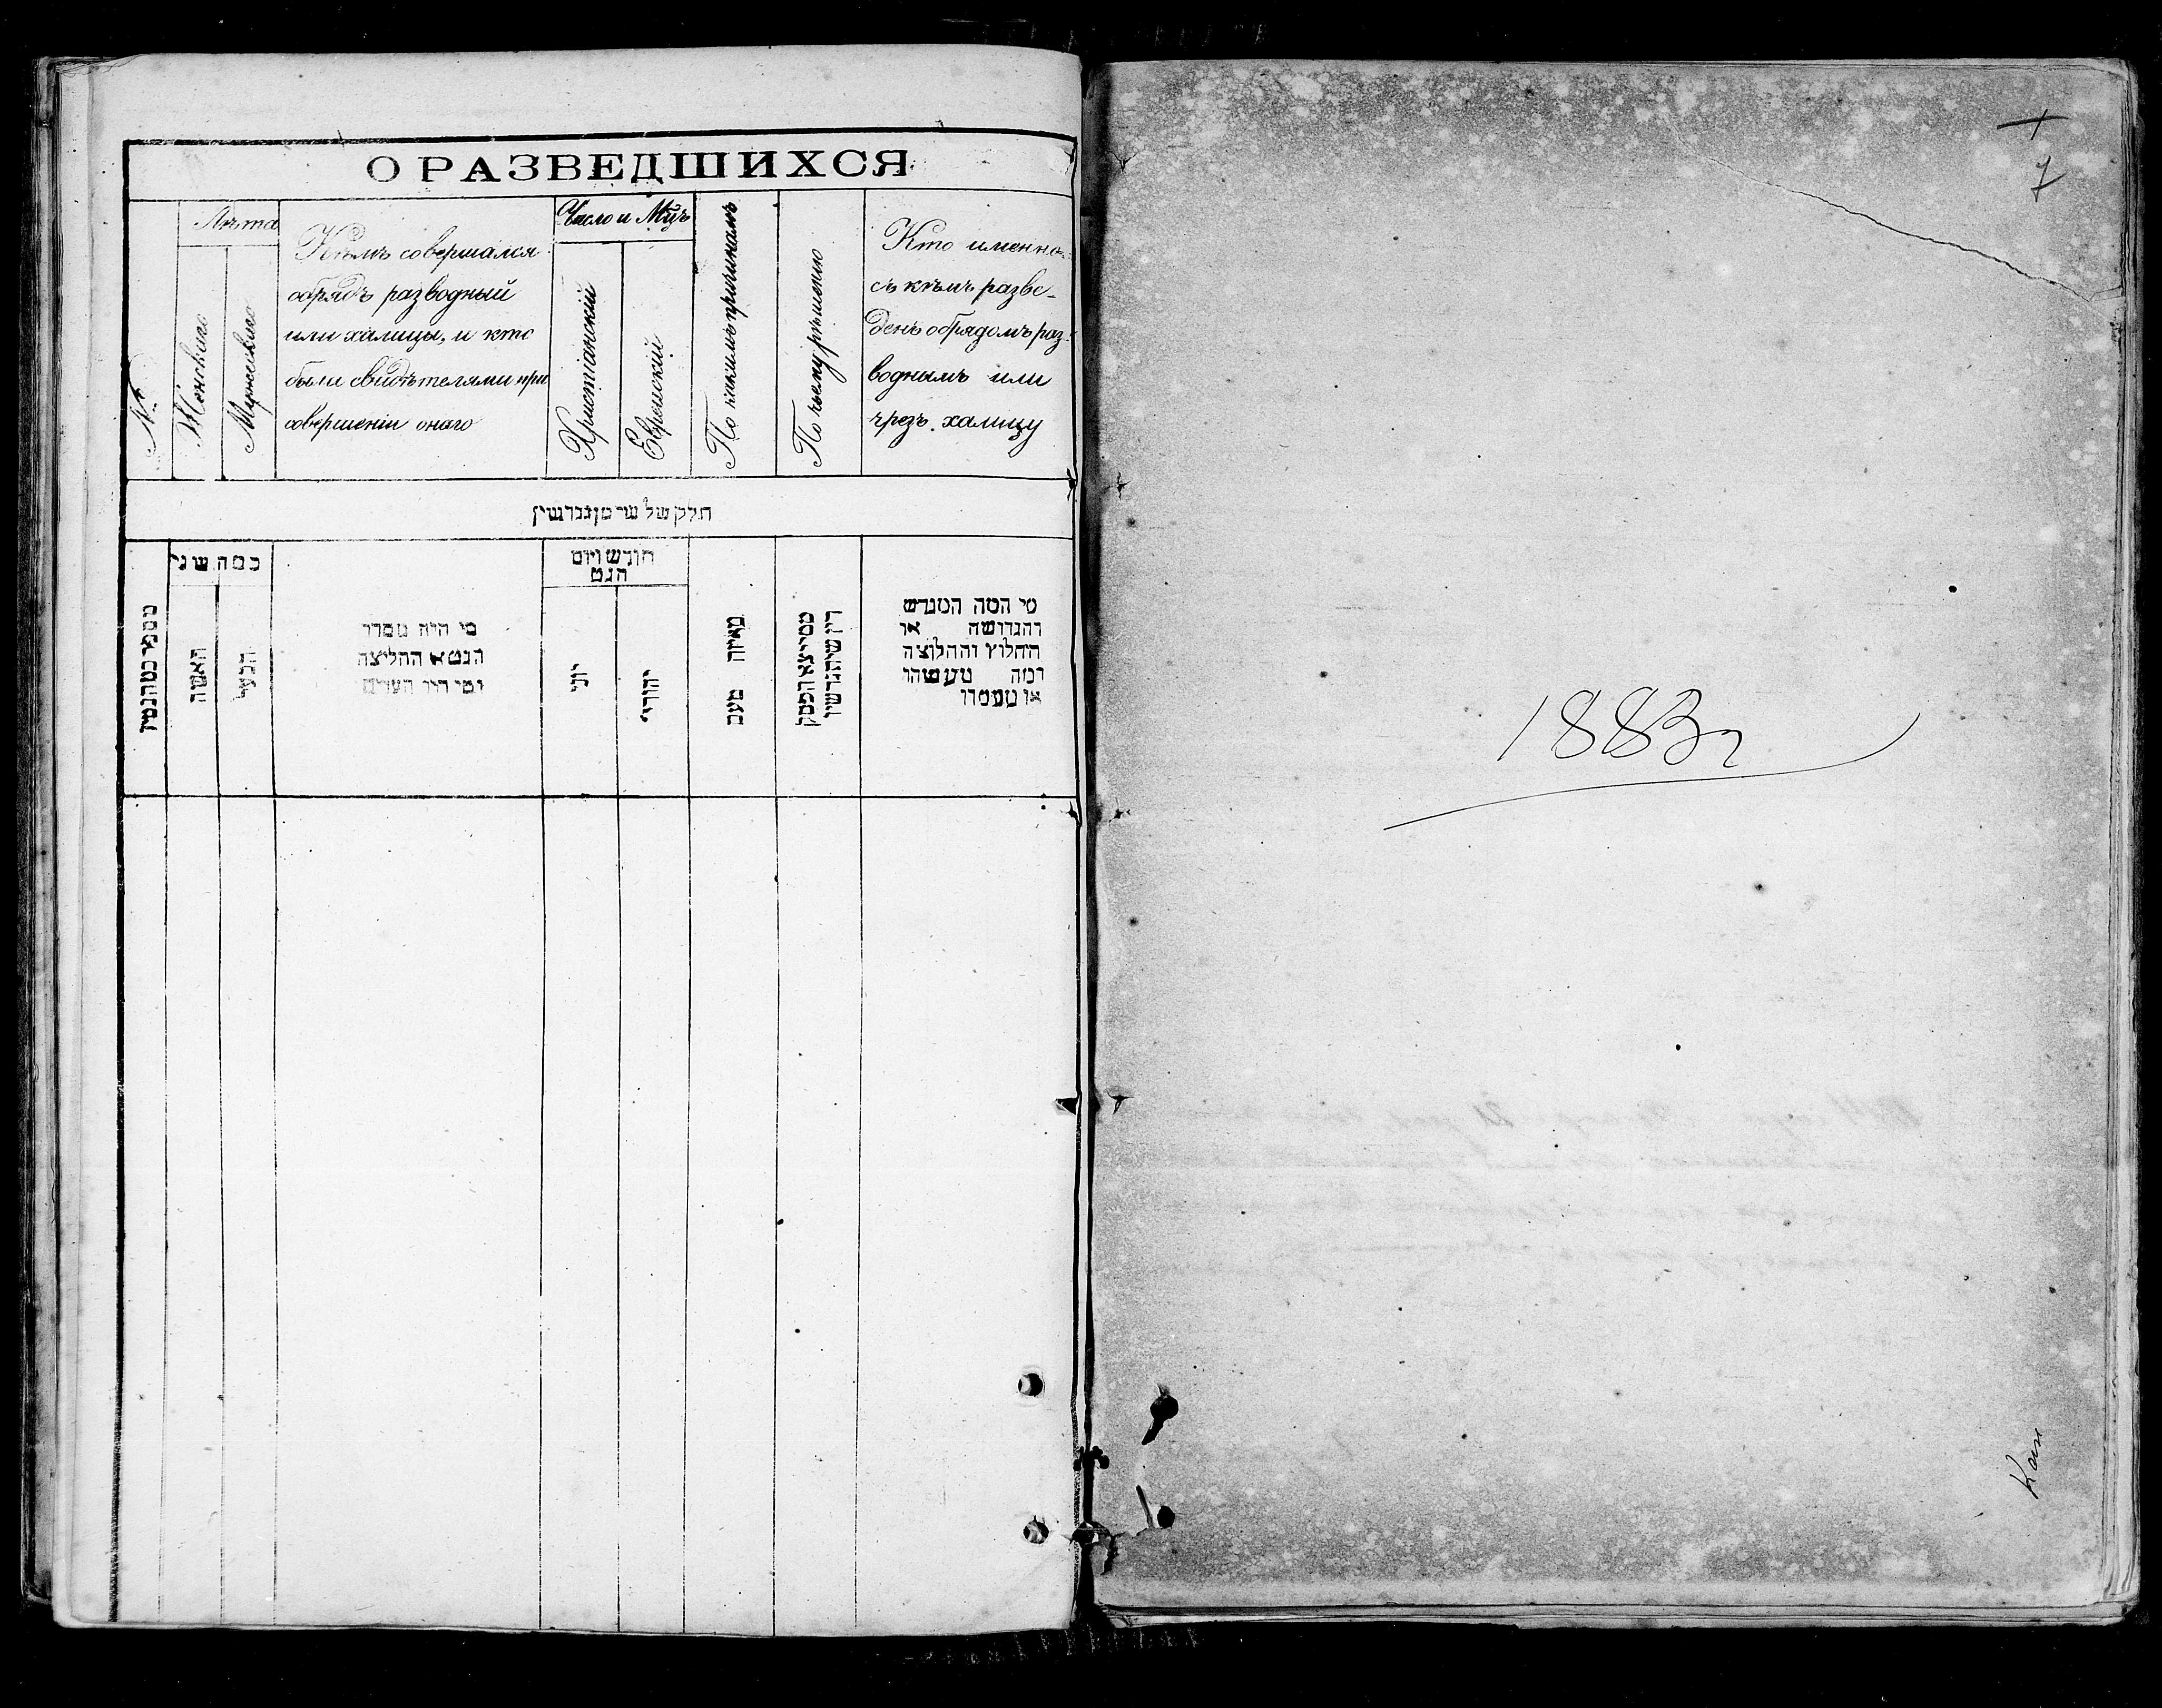 О РАЗВЕДШИХСЯ
№
Лѣта
Женскаго
Мужескаго
Кѣмъ совершался
обрядъ разводный
или халицы, и кто
были свидѣтелями при
совершеніи онаго
Число и Мцъ
Христіанскій
Еврейскій
По какимъ причинамъ
По чьему рѣшенію
Кто именно
съ кѣмъ разве-
денъ обрядомъ раз-
воднымъ или
чрезъ халицу
חלק של
כמה שני
האשה
הבעל
מי היה מסדר
הגט או החליצה
ומי היו העדים
חודש ויום
הגט
יוני
יהודי
מאיזה טעם
מי המה המגרש
והגרושה או
החולץ והחלוצה
ומה מעשהו
או מעמדו
7
1883 г